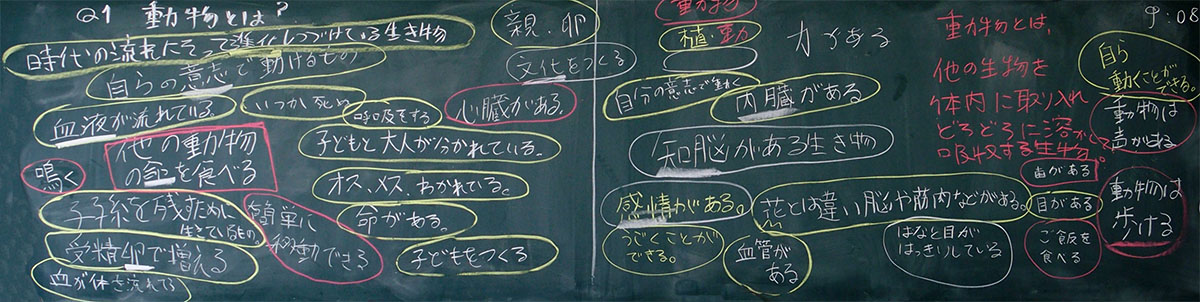 Q1 動物とは?
時代の流れにそって進化しつづけている生き物
自らの意志で動けるもの
血液が流れている。
いつか死ぬ
呼吸をする
心臓がある。
親、卵
文化をつくる
鳴く
他の動物
の命を食べる
子どもと大人が分かれている。
オス、メス、わかれている。
命がある。
子どもをつくる
子孫を残すために
生きているもの。
簡単に
移動できる
受精卵で増える
血が体を流れてる
動物
植・動
力がある
自分の意志で動く
内臓がある
知脳がある生き物
感情がある。
うごくことが
できる。
花とは違い脳や筋肉などがある。
血管が
ある
はなと目が
はっきりしている
動物とは、
他の生物を
体内に取り入れ
どろどろに溶かして
吸収する生物。
歯がある
目がある
ご飯を
食べる
9:08
自ら
動くことが
できる。
動物は
声がでる
動物は
歩ける